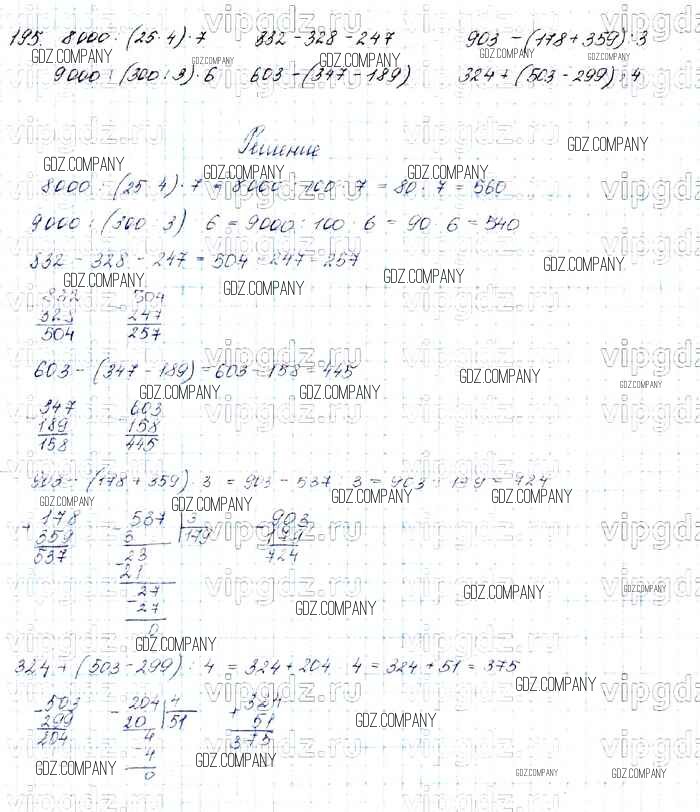 195. 8000 : (25·4)·7   832 - 328 - 247   903 - (178 + 359) : 3
9000 : (300 : 3)·6   603 - (347 - 189)   324 + (503 - 299) : 4
Решение
8000 : (25·4)·7 = 8000 : 100 · 7 = 80 · 7 = 560
9000 : (300 : 3) · 6 = 9000 : 100 · 6 = 90 · 6 = 540
832 - 328 - 247 = 504 - 247 = 257
832   504
328   247
504   257
603 - (347 - 189) = 603 - 158 = 445
347   603
189   158
158   445
903 - (178 + 359) : 3 = 903 - 537 : 3 = 903 - 179 = 724
+ 178   - 537 3   - 903
359   3 179   179
537   - 23   724
21
- 27
27
0
324 + (503 - 299) : 4 = 324 + 204 : 4 = 324 + 51 = 375
- 503   - 204 4   + 324
299   20 51   51
204   4   375
- 4
0
vipgdz.ru
GDZ.COMPANY